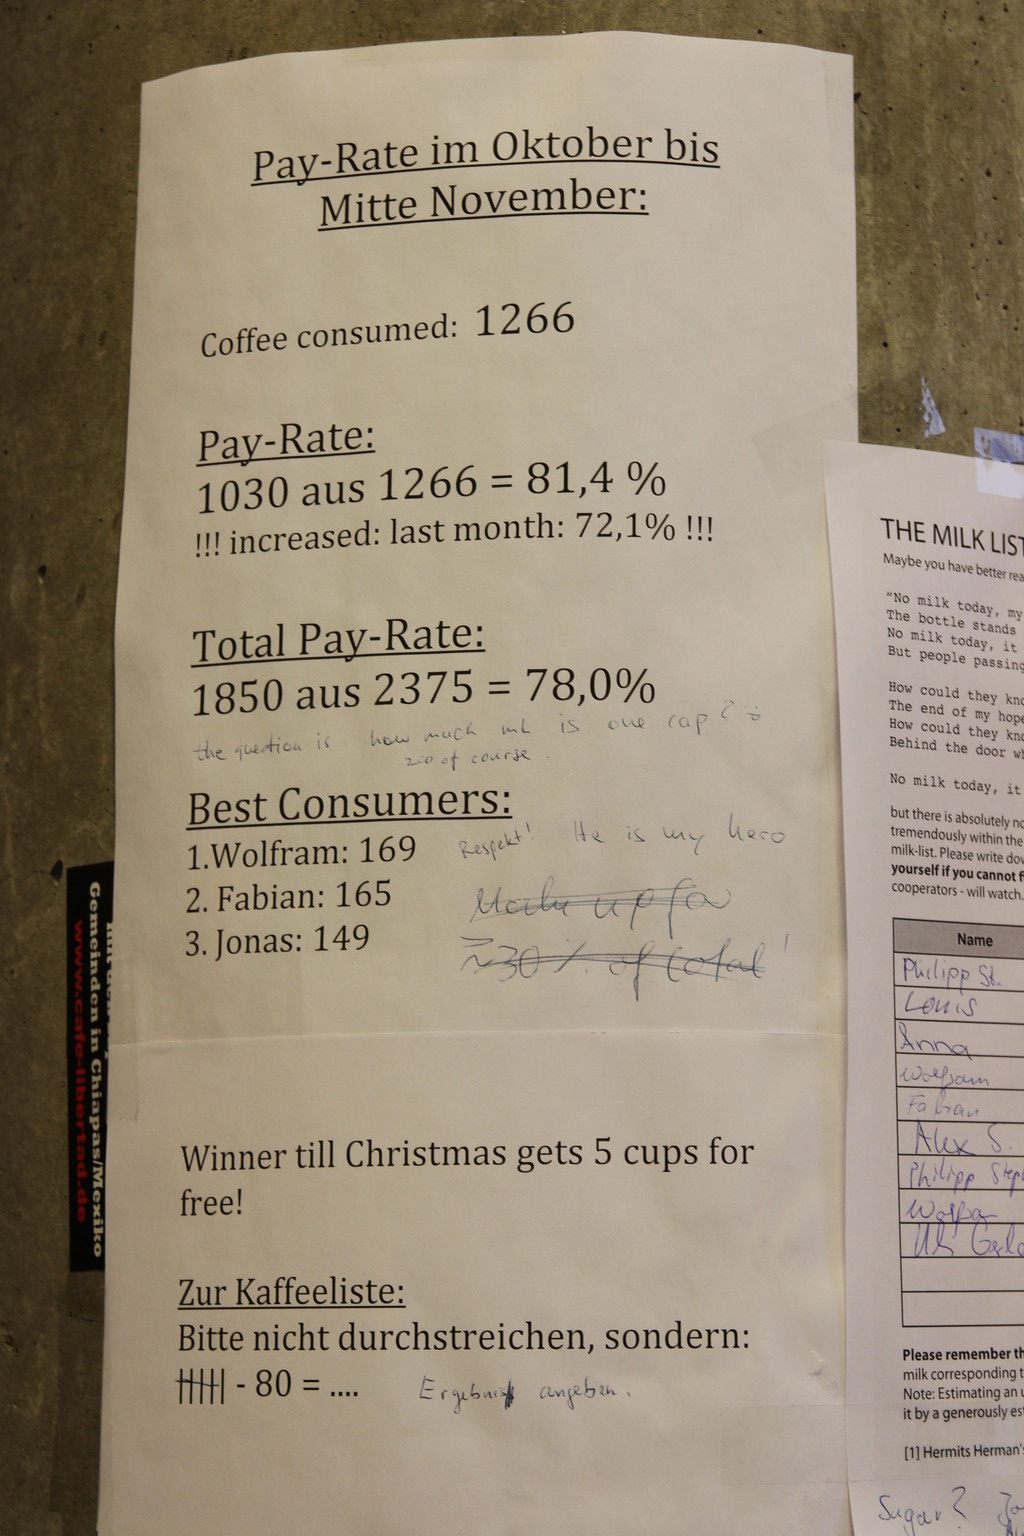 Pay-Rate im Oktober bis
Mitte November:
Coffee consumed: 1266
Pay-Rate:
1030 aus 1266 = 81,4 %
!!! increased: last month: 72,1% !!!
Total Pay-Rate:
1850 aus 2375 = 78,0%
the question is how much mL is one cap?
200 of course.
Best Consumers:
1.Wolfram: 169
Respekt! He is my hero
2. Fabian: 165
up for
3. Jonas: 149
~30 % of total!
Winner till Christmas gets 5 cups for
free!
Zur Kaffeeliste:
Bitte nicht durchstreichen, sondern:
- 80 = ....
Ergebnis angeben.
Gemeinden in Chiapas/Mexiko
www.cafe-libertad.de
THE MILK LIST
Maybe you have better rea
"No milk today, my
The bottle stands
No milk today, it
But people passing
How could they kno
The end of my hope
How could they kno
Behind the door wh
No milk today, it
but there is absolutely no
tremendously within the
milk-list. Please write dow
yourself if you cannot f
cooperators - will watch.
Name
Philipp St.
Louis
Anna
Wolfram
Fabian
Alex S.
Philipp Step
Please remember th
milk corresponding t
Note: Estimating an u
it by a generously es
[1] Hermits Herman's
Sugar?